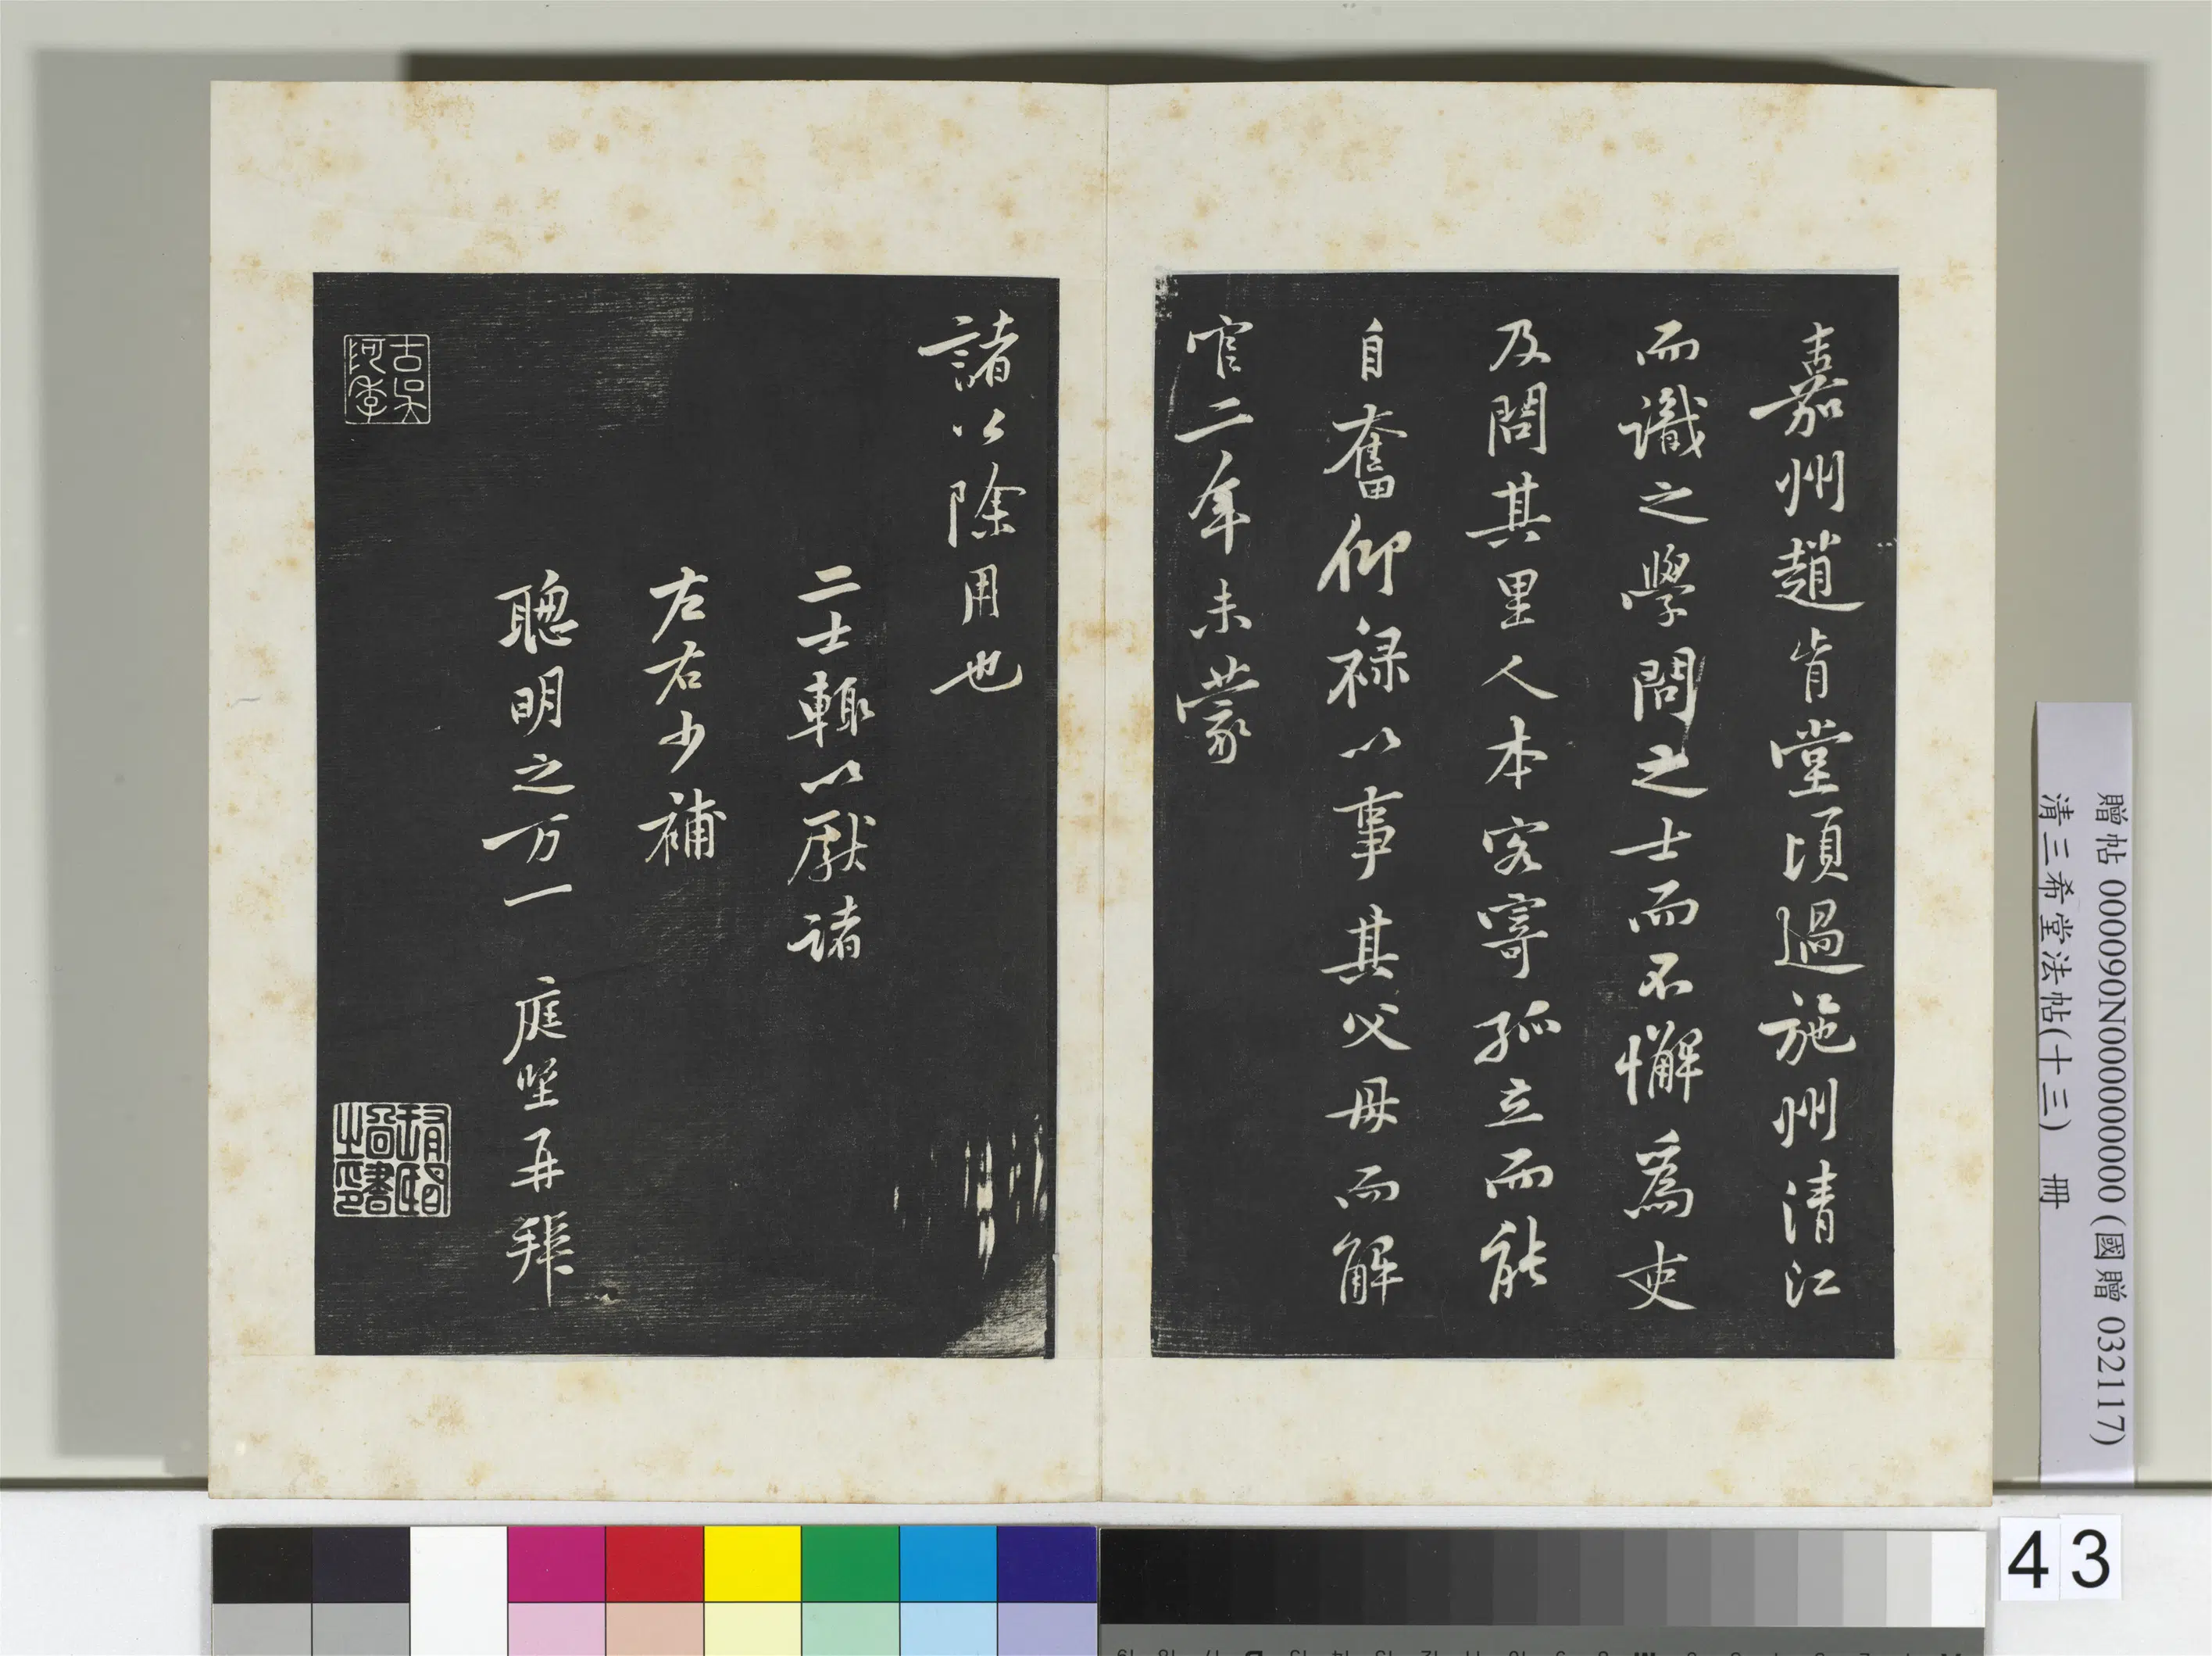 嘉州趙肯堂頃過施州清江
而識之學問之士而不懈為吏
及問其里人本客寄孤立而能
自奮仰祿以事其父母而解
官二年未蒙
諸以除用也
二士輒以獻諸
左右少補
聰明之万一 庭堅再拜
贈帖 000090N000000000 (國贈 032117)
清三希堂法帖(十三) 冊
43